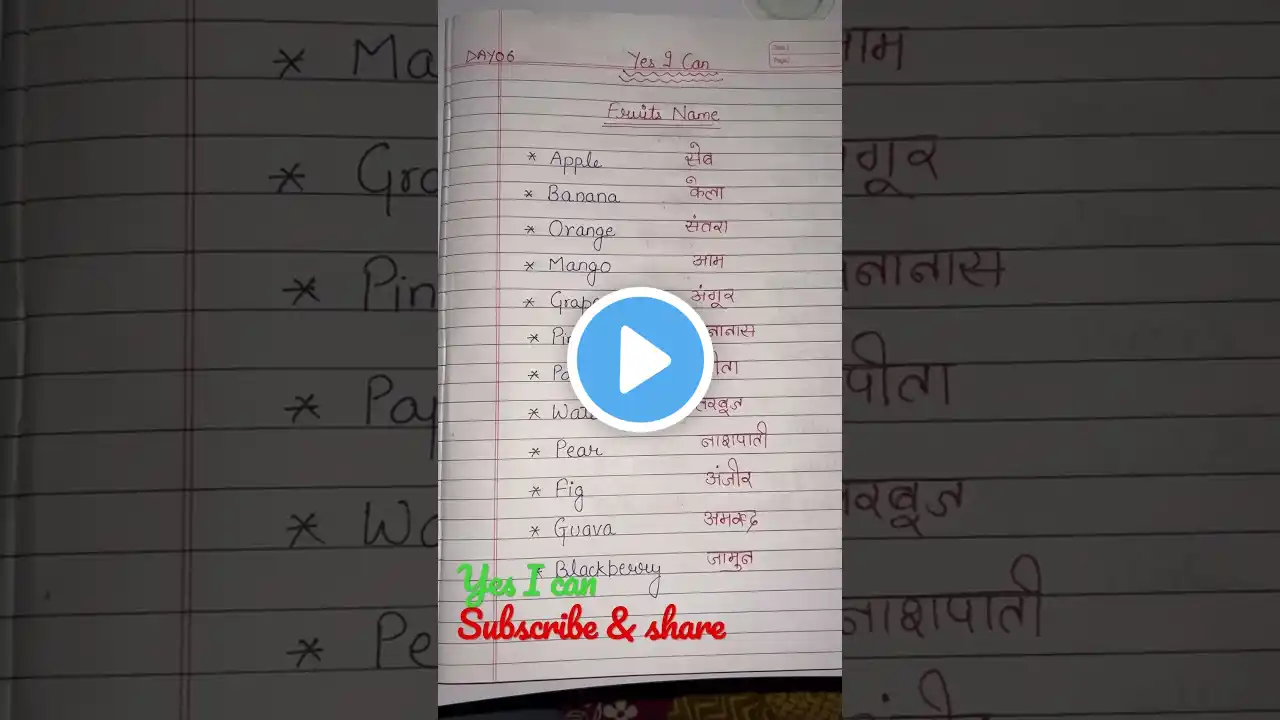 DAY06 Yes I Can
Date:
Page:
Fruits Name
* Apple सेब
* Banana केला
* Orange संतरा
* Mango आम
* Grap अंगूर
* Pin नानास
* Pa ीता
* Wate तरबूज
* Pear नाशपाती
* Fig अंजीर
* Guava अमरूद
* Blackberry जामुन
Yes I can
Subscribe & share
* Ma ाम
* Gra ंगूर
* Pin नानास
* Pap पीता
* Wa रबूज
* Pe नाशपाती